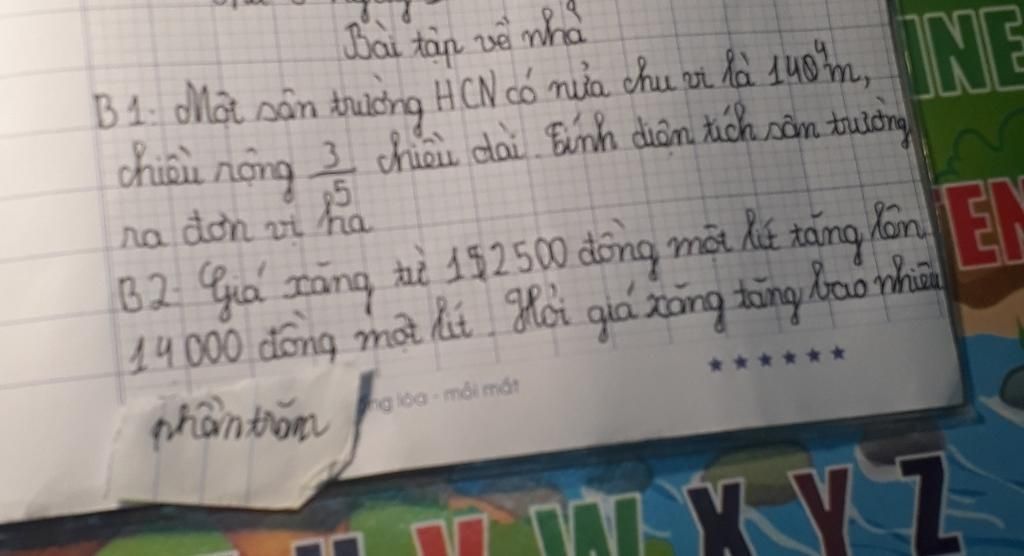 Bài tập về nhà
B1: Một sân trường HCN có nửa chu vi là 140m,
chiều rộng 3/5 chiều dài. Tính diện tích sân trường
ra đơn vị ha
B2: Giá xăng từ 12500 đồng một lít tăng lên
14000 đồng một lít. Hỏi giá xăng tăng bao nhiêu
phần trăm
lóa - mỏi mắt
INE
EN
W X Y Z